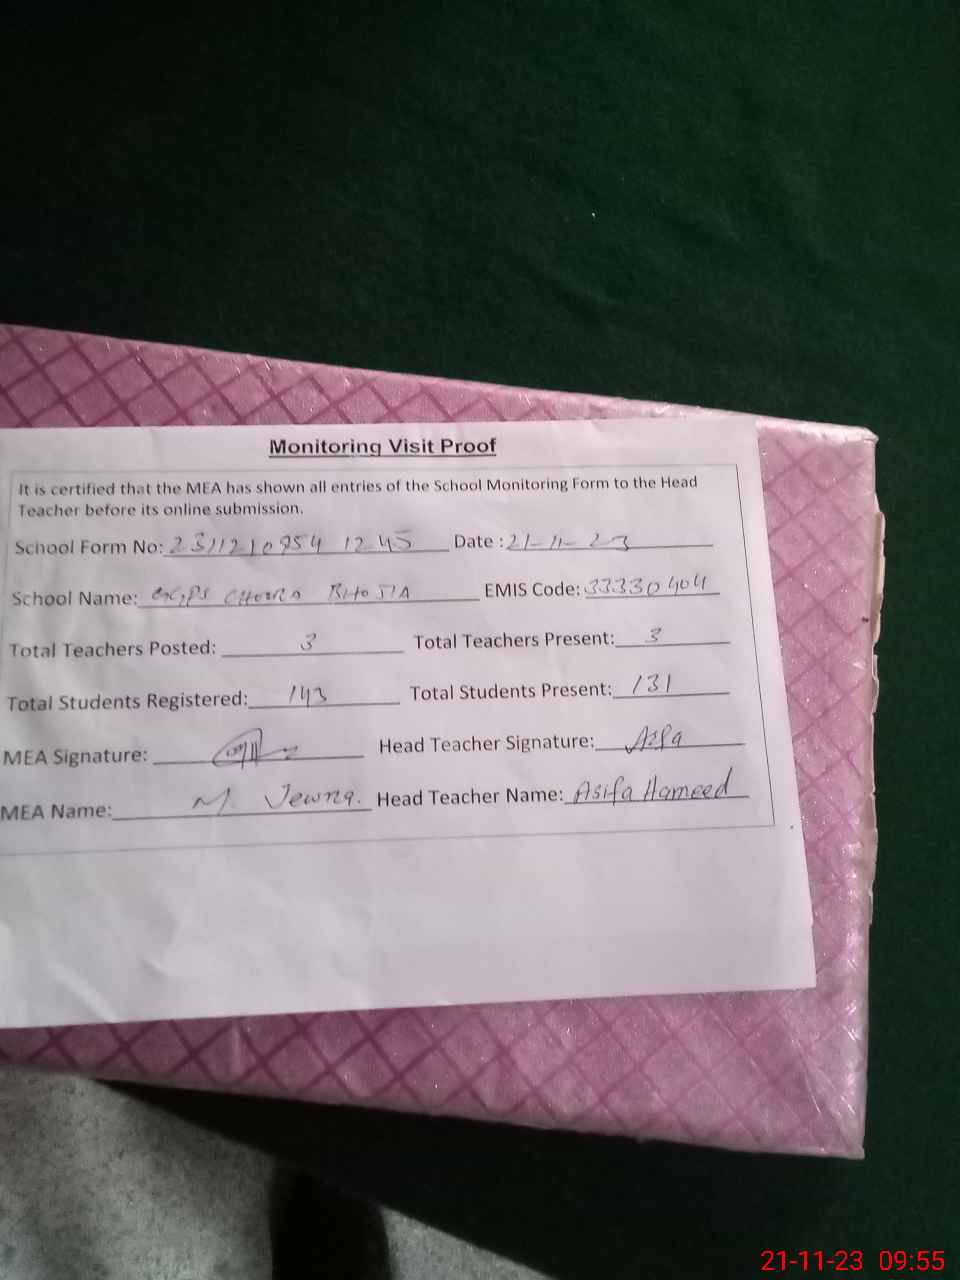 Monitoring Visit Proof
It is certified that the MEA has shown all entries of the School Monitoring Form to the Head
Teacher before its online submission.
School Form No: 2311210954 1245 Date: 21-11-23
School Name: GGPS BHOJIA EMIS Code: 33330404
Total Teachers Posted: 3 Total Teachers Present: 3
Total Students Registered: 143 Total Students Present: 131
MEA Signature: Head Teacher Signature: Asfa
MEA Name: M. Head Teacher Name: Asifa Hameed
21-11-23 09:55